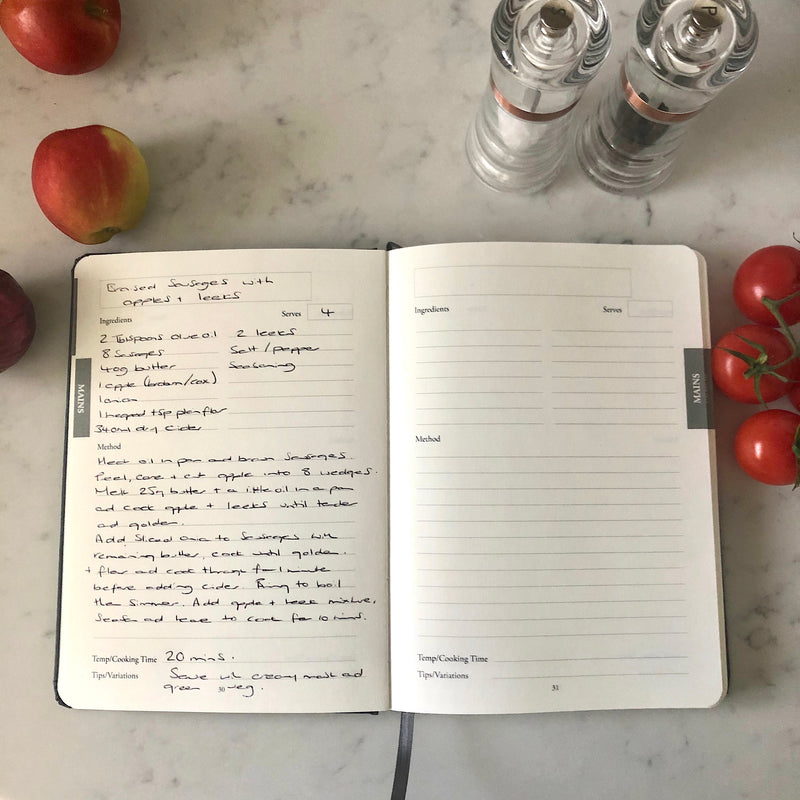 S
P
Braised Sausages with
apples + leeks
Ingredients
Serves 4
2 Tblspoons olive oil
2 leeks
8 Sausages
Salt / pepper
40g butter
Seasoning
1 apple (braburn/cox)
1 onion
1 heaped tsp plain flour
340ml dry cider
MAINS
Method
Heat oil in pan and brown Sausages.
Peel, core + cut apple into 8 wedges.
Melt 25g butter + a little oil in a pan
and cook apple + leeks until tender
and golden.
Add Sliced onion to Sausages with
remaining butter, cook until golden.
+ flour and cook through for 1 minute
before adding cider. Bring to boil
then Simmer. Add apple + leek mixture,
Season and leave to cook for 10 mins.
Temp/Cooking Time 20 mins.
Tips/Variations Serve with creamy mash and
green veg.
30
Ingredients
Serves
MAINS
Method
Temp/Cooking Time
Tips/Variations
31